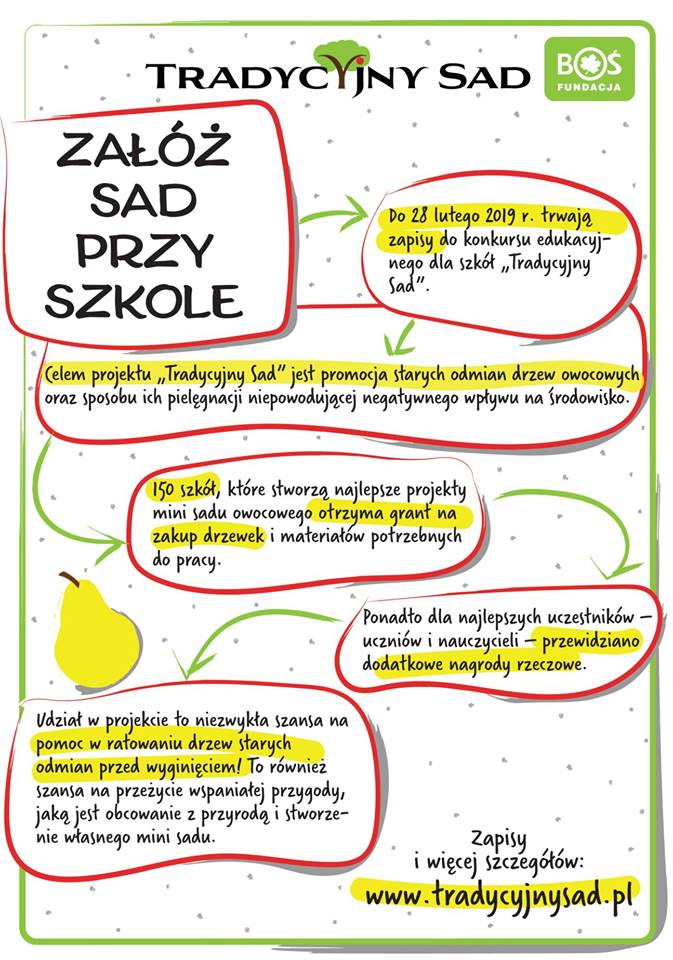 TRADYCYJNY SAD
BOŚ
FUNDACJA
ZAŁÓŻ
SAD
PRZY
SZKOLE
Do 28 lutego 2019 r. trwają
zapisy do konkursu edukacyj-
nego dla szkół „Tradycyjny
Sad”.
Celem projektu „Tradycyjny Sad” jest promocja starych odmian drzew owocowych
oraz sposobu ich pielęgnacji niepowodującej negatywnego wpływu na środowisko.
150 szkół, które stworzą najlepsze projekty
mini sadu owocowego otrzyma grant na
zakup drzewek i materiałów potrzebnych
do pracy.
Ponadto dla najlepszych uczestników –
uczniów i nauczycieli – przewidziano
dodatkowe nagrody rzeczowe.
Udział w projekcie to niezwykła szansa na
pomoc w ratowaniu drzew starych
odmian przed wyginięciem! To również
szansa na przeżycie wspaniałej przygody,
jaką jest obcowanie z przyrodą i stworze-
nie własnego mini sadu.
Zapisy
i więcej szczegółów:
www.tradycyjnysad.pl